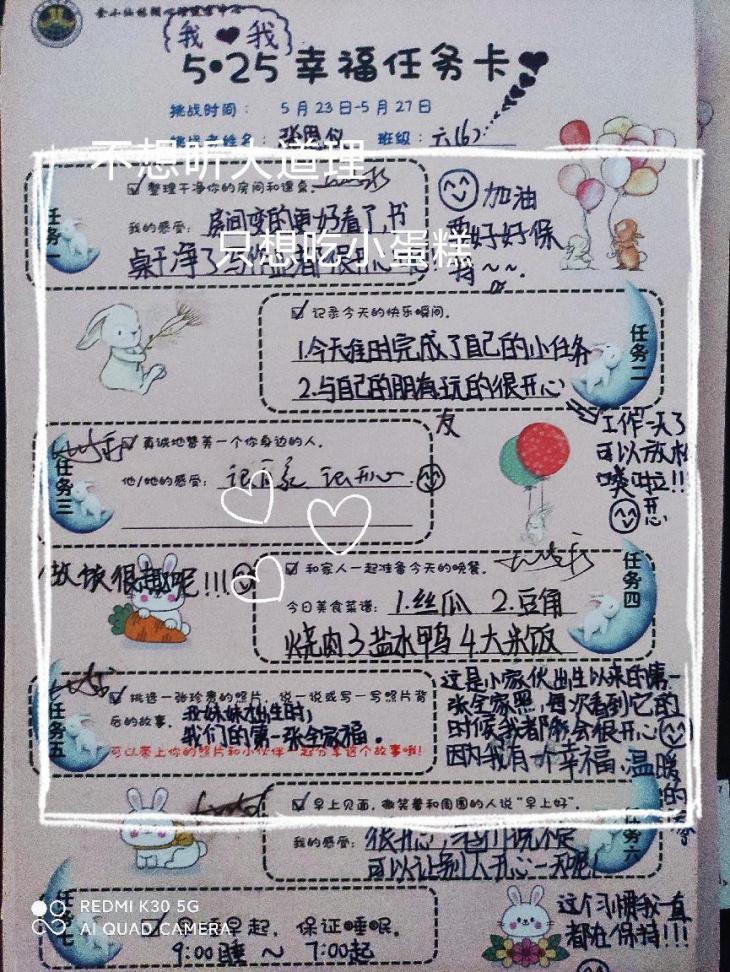 我❤我
5•25幸福任务卡
挑战时间： 5月23日-5月27日
挑战者姓名： 班级：六(6)
不想听大道理
☑ 整理干净你的房间和课桌。
任务一
我的感受：房间变的更好看了,书
桌干净了
只想吃小蛋糕
加油
要好好保
持~~.
☑ 记录今天的快乐瞬间。
1.今天准时完成了自己的小任务
2.与自己的朋友玩的很开心
任务二
☑ 真诚地赞美一个你身边的人。
任务三
他/她的感受：
友
工作一天了
可以放松
噗啦!!
开心
☑ 和家人一起准备今天的晚餐。
任务四
今日美食菜谱：1.丝瓜 2.豆角
烧肉3盐水鸭4大米饭
☑ 挑选一张珍贵的照片，说一说或写一写照片背
后的故事。我妹妹出生时,
我们的第一张全家福。
任务五
可以带上你的照片和小伙伴一起分享这个故事哦!
这是小家伙出生以来的第一
张全家照,每次看到它的
时候我都会很开心
因为我有一个幸福、温暖
的家
☑ 早上见面，微笑着和周围的人说“早上好”。
任务六
我的感受：很开心,
可以让别人开心一天呢!
任务七
☑ 早睡早起，保证睡眠。
9:00睡 ~ 7:00起
这个习惯我一直
都在保持!!!
REDMI K30 5G
AI QUAD CAMERA